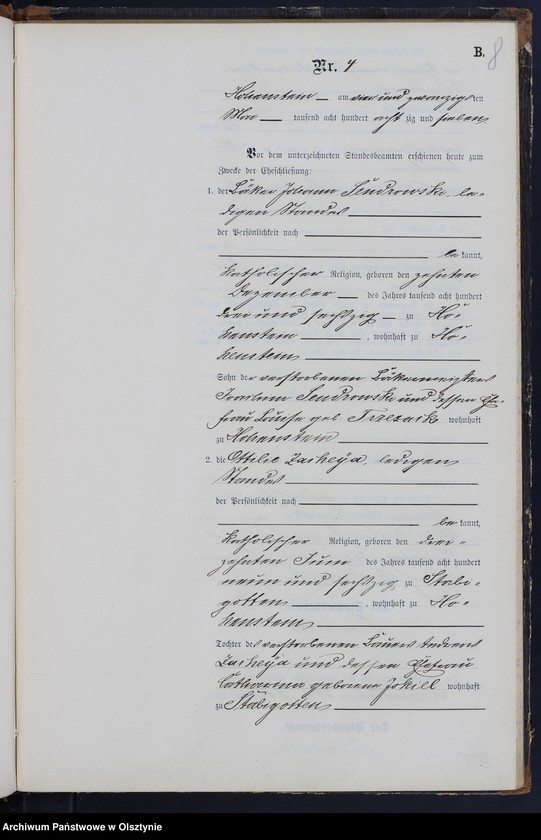 B. 8
Nr. 4
Hohenstein am vier und zwanzigsten
Mai tausend acht hundert acht zig und sieben
Vor dem unterzeichneten Standesbeamten erschienen heute zum
Zwecke der Eheschließung:
1. der Bäker Johann Sendrowski, le-
digen Standes
der Persönlichkeit nach
be kannt,
katholischer Religion, geboren den zehnten
Dezember des Jahres tausend acht hundert
drei und sechszig zu Ho-
henstein, wohnhaft zu Ho-
henstein
Sohn des verstorbenen Bäkermeisters
Sendrowski und dessen Ehe-
frau Louise geb wohnhaft
zu Hohenstein
2. die Ottilie Zacheja, ledigen
Standes
der Persönlichkeit nach
be kannt,
katholischer Religion, geboren den drei-
zehnten Juni des Jahres tausend acht hundert
neun und sechszig zu Stabi-
gotten, wohnhaft zu Ho-
henstein
Tochter des verstorbenen Bauers Andreas
Zacheja und dessen Ehefrau
Catharina geborene Jokiel wohnhaft
zu Stabigotten
Archiwum Państwowe w Olsztynie